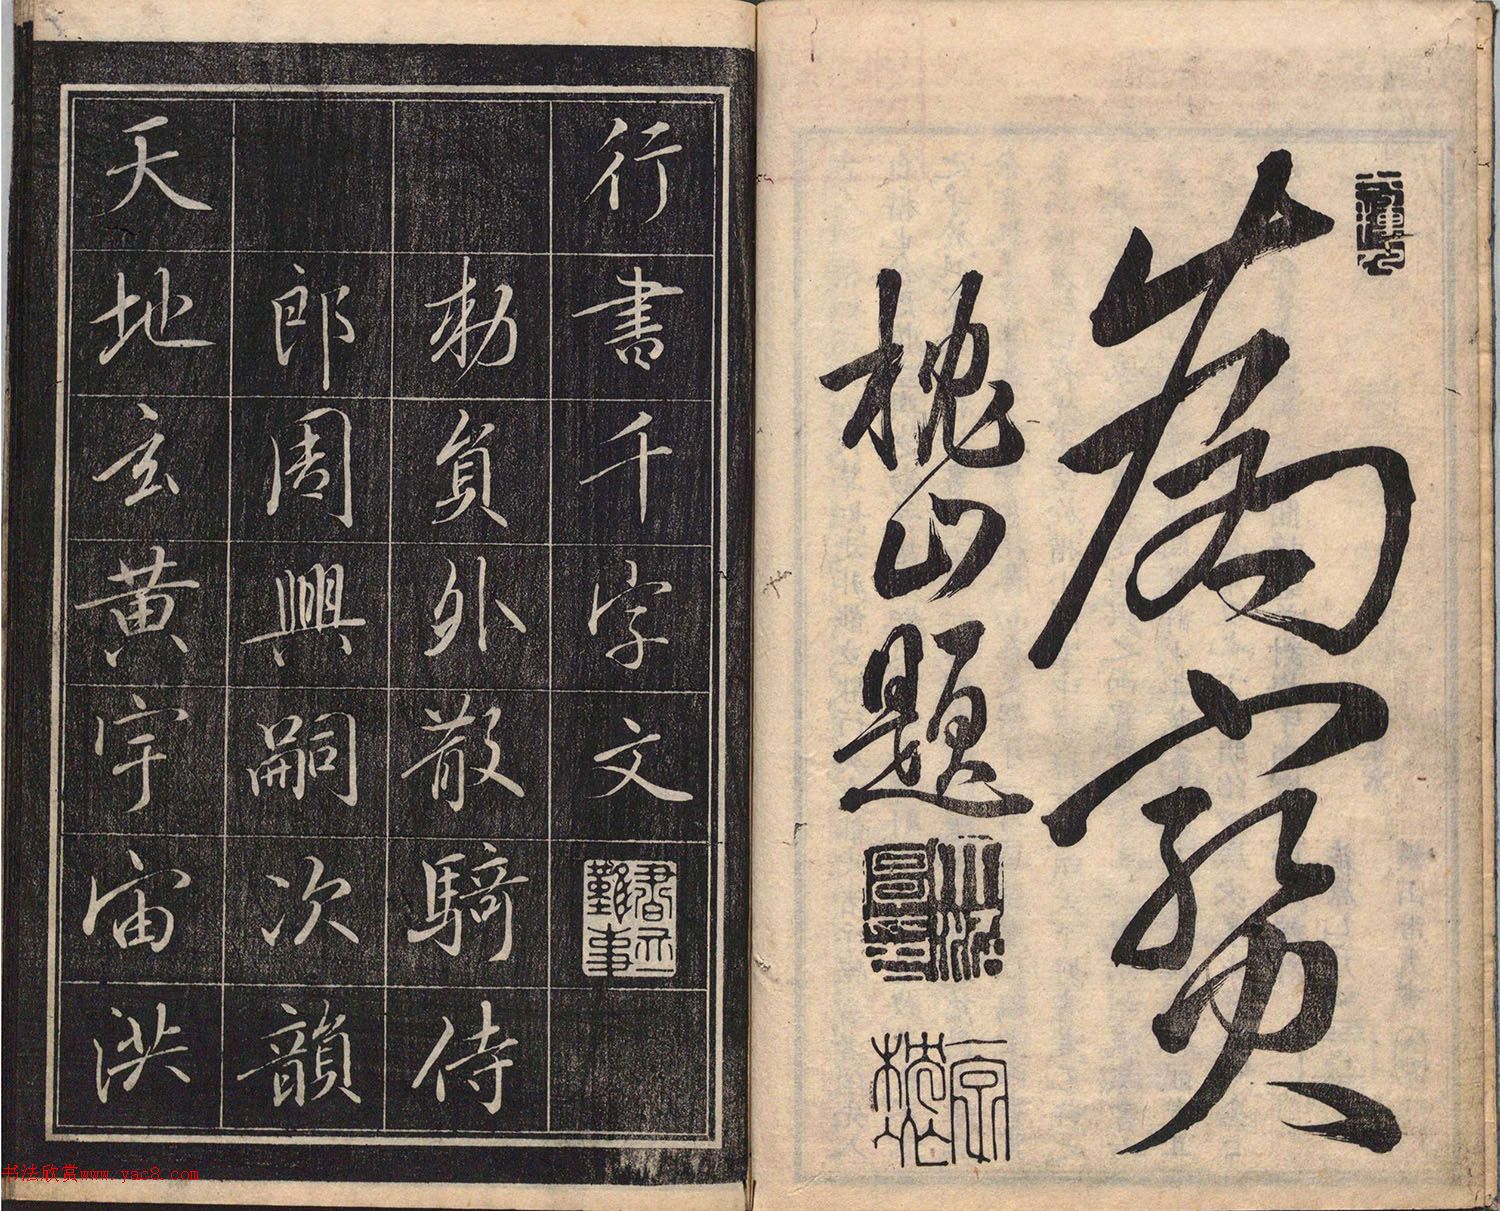 為寶
槐山題
行書千字文
勅員外散騎侍
郎周興嗣次韻
天地玄黃宇宙洪
书法欣赏www.yac8.com